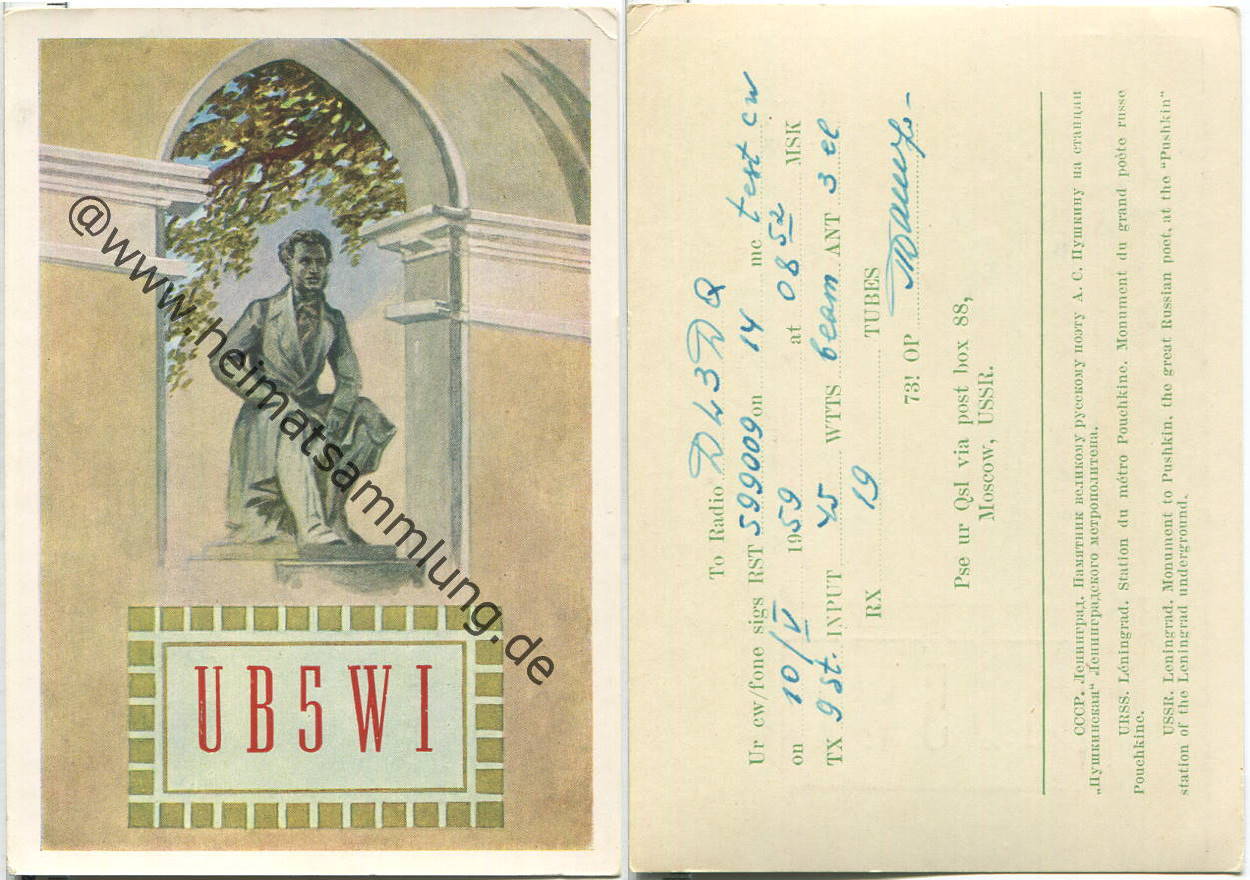 @www.heimatsammlung.de
UB5WI
To Radio DL3DQ
Ur cw/fone sigs RST 599009 on 14 mc test cw
on 10/V 1959 at 0852 MSK
TX 9 st. INPUT 45 WTTS beam ANT 3 el
RX 19 TUBES
73! OP
Pse ur Qsl via post box 88,
Moscow, USSR.
СССР. Ленинград. Памятник великому русскому поэту А. С. Пушкину на станции
„Пушкинская“ Ленинградского метрополитена.
URSS. Léningrad. Station du métro Pouchkine. Monument du grand poète russe
Pouchkine.
USSR. Leningrad. Monument to Pushkin, the great Russian poet, at the “Pushkin“
station of the Leningrad underground.